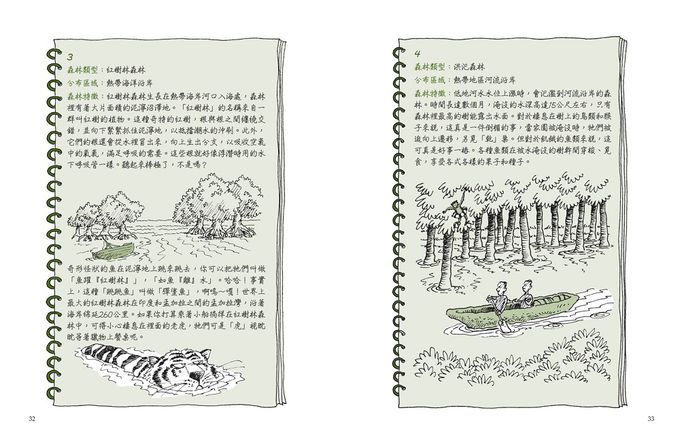 3
森林類型：紅樹林森林
分布區域：熱帶海洋沿岸
森林特徵：紅樹林森林生長在熱帶海岸河口入海處，森林
裡有著大片面積的泥濘沼澤地。「紅樹林」的名稱來自一
群叫紅樹的植物。這種奇特的紅樹，根與根之間情繞交
錯，並向下緊緊抓住泥濘地，以抵擋潮水的沖刷。此外，
它們的根還會從水裡冒出來，向上生出分支，以吸收空氣
中的氧氣，滿足呼吸的需要。這些根就好像浮潛時用的水
下呼吸管一樣。聽起來棒極了，不是嗎？
奇形怪狀的魚在泥濘地上跳來跳去，你可以把牠們叫做
「魚躍『紅樹林』」，「如魚『離』水」。哈哈！事實
上，這種「跳跳魚」叫做「彈塗魚」，啊嗚～嘎！世界上
最大的紅樹林森林在印度和孟加拉之間的孟加拉灣，沿著
海岸綿延260公里。如果你打算乘著小船徜徉在紅樹林森
林中，可得小心棲息在裡面的老虎，牠們可是「虎」視眈
眈等著獵物上餐桌呢。
32
4
森林類型：洪氾森林
分布區域：熱帶地區河流沿岸
森林特徵：低地河水水位上漲時，會氾濫到河流沿岸的森
林。時間長達數個月，淹沒的水深高達15公尺左右，只有
森林裡最高的樹能露出水面。對於棲息在樹上的鳥類和猴
子來說，這真是一件倒楣的事，當家園被淹沒時，牠們被
迫向上遷移，另覓「乾」巢。但對於飢餓的魚類來說，這
可真是好事一樁。各種魚類在被水淹沒的樹幹間穿梭、覓
食，享受各式各樣的果子和種子。
33